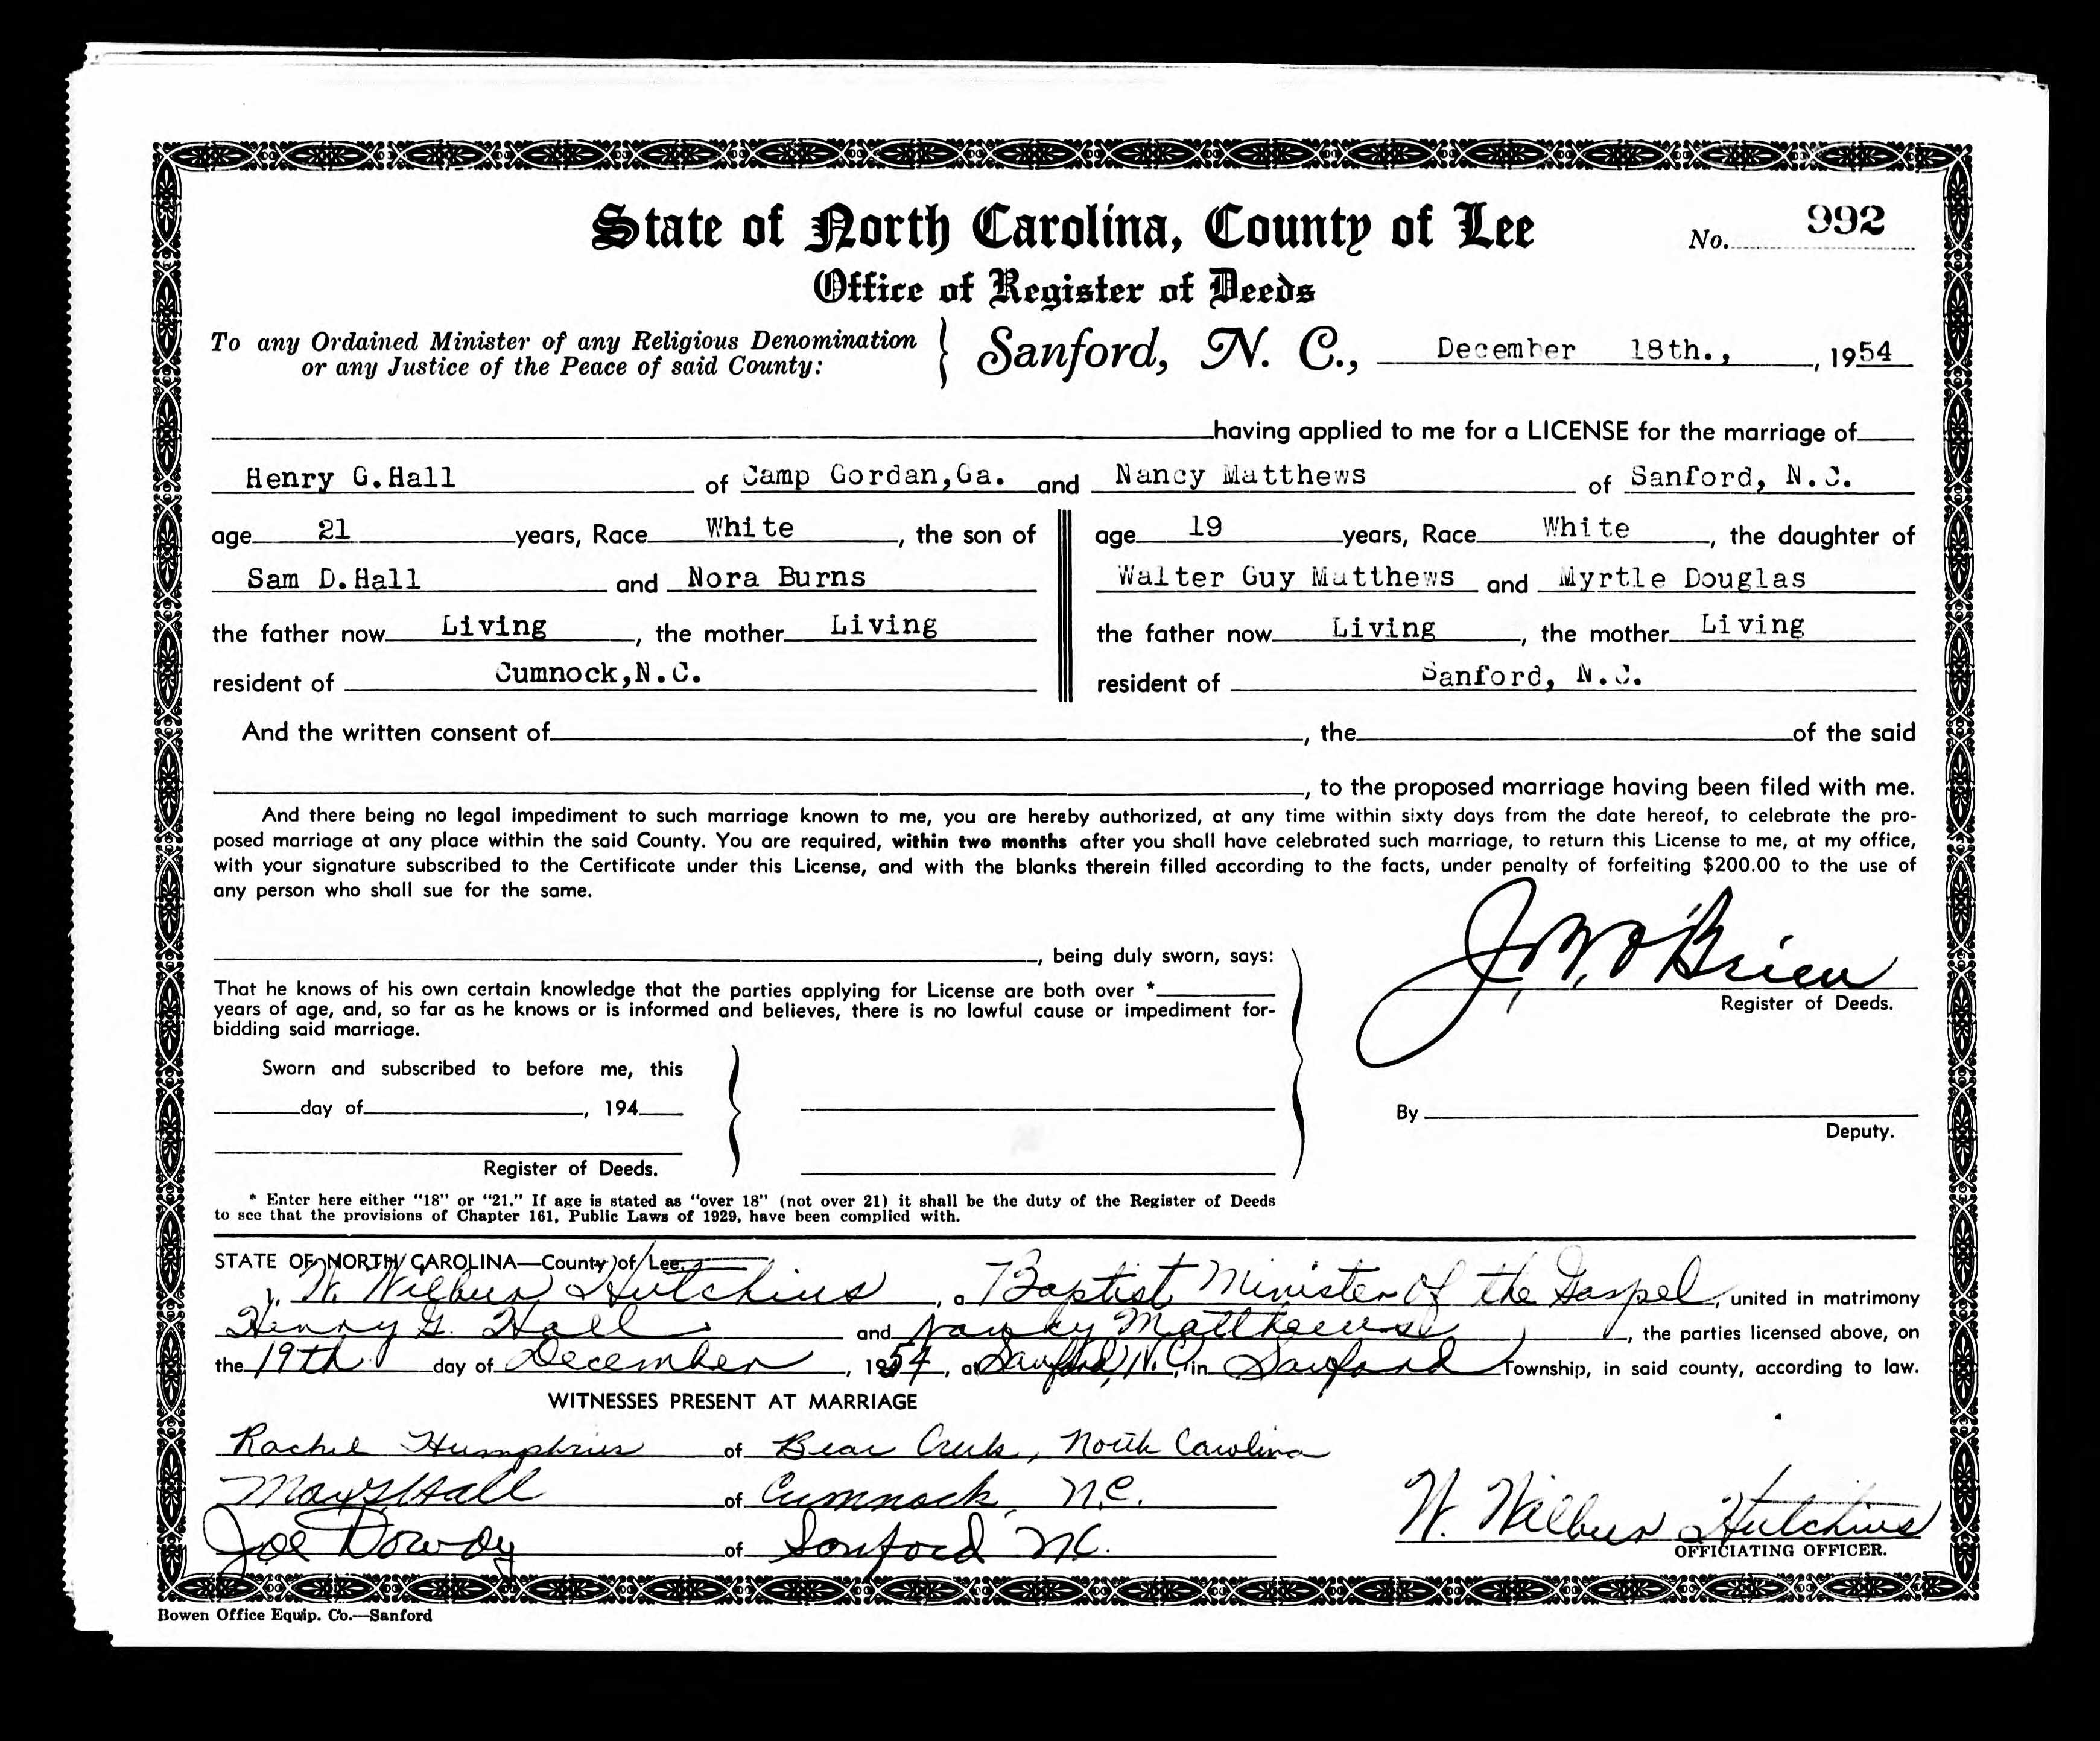 State of North Carolina, County of Lee
No. 992
Office of Register of Deeds
To any Ordained Minister of any Religious Denomination
or any Justice of the Peace of said County:
Sanford, N. C., December 18th., , 1954
having applied to me for a LICENSE for the marriage of
Henry G. Hall of Camp Gordan, Ga. and Nancy Matthews of Sanford, N.C.
age 21 years, Race White , the son of
Sam D. Hall and Nora Burns
the father now Living , the mother Living
resident of Cumnock, N.C.
age 19 years, Race White , the daughter of
Walter Guy Matthews and Myrtle Douglas
the father now Living , the mother Living
resident of Sanford, N.C.
And the written consent of , the of the said
, to the proposed marriage having been filed with me.
And there being no legal impediment to such marriage known to me, you are hereby authorized, at any time within sixty days from the date hereof, to celebrate the pro-
posed marriage at any place within the said County. You are required, within two months after you shall have celebrated such marriage, to return this License to me, at my office,
with your signature subscribed to the Certificate under this License, and with the blanks therein filled according to the facts, under penalty of forfeiting $200.00 to the use of
any person who shall sue for the same.
, being duly sworn, says:
That he knows of his own certain knowledge that the parties applying for License are both over *
years of age, and, so far as he knows or is informed and believes, there is no lawful cause or impediment for-
bidding said marriage.
Sworn and subscribed to before me, this
day of , 194
Register of Deeds.
J. W. O'Brien
Register of Deeds.
By
Deputy.
* Enter here either "18" or "21." If age is stated as "over 18" (not over 21) it shall be the duty of the Register of Deeds
to see that the provisions of Chapter 161, Public Laws of 1929, have been complied with.
STATE OF NORTH CAROLINA—County of Lee.
I, W. Wilbur Hutchins , a Baptist Minister of the Gospel, united in matrimony
Henry G. Hall and Nancy Matthews , the parties licensed above, on
the 19th day of December , 1954 , at Sanford, N.C., in Sanford Township, in said county, according to law.
WITNESSES PRESENT AT MARRIAGE
Rachel Humphries of Bear Creek, North Carolina
Hall of Cumnock, N.C.
Joe Dowdy of Sanford N.C.
W. Wilbur Hutchins
OFFICIATING OFFICER.
Bowen Office Equip. Co.—Sanford